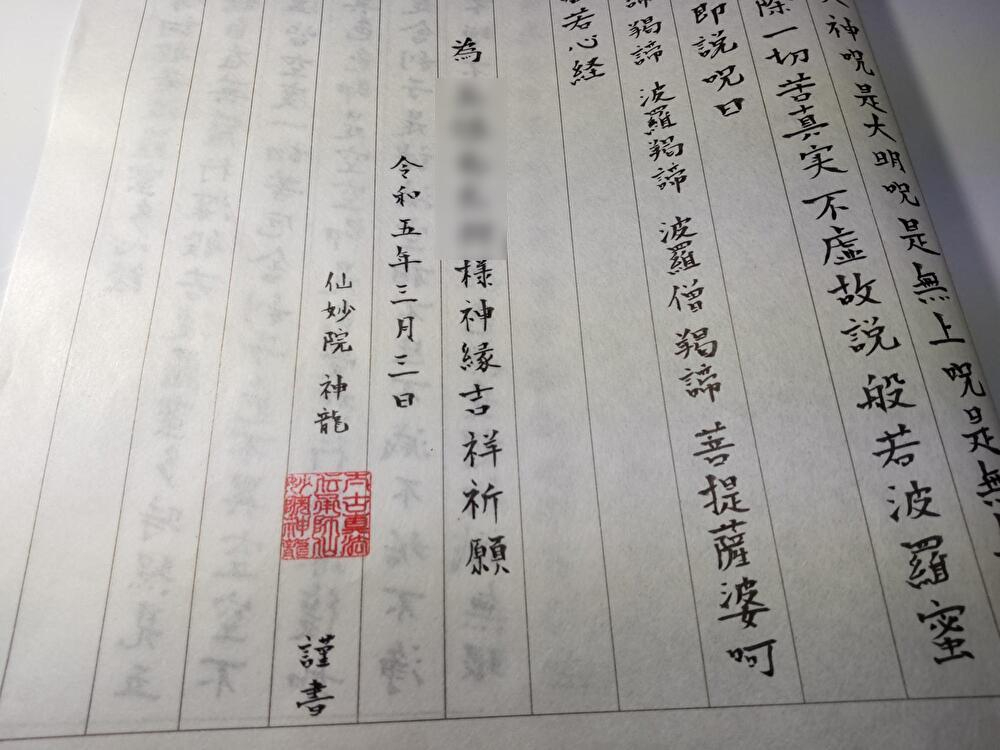 神呪是大明呪是無上呪是無
除一切苦真実不虚故説般若波羅蜜
即説呪曰
諦羯諦 波羅羯諦 波羅僧羯諦 菩提薩婆呵
若心経
為
様神縁吉祥祈願
令和五年三月三日
仙妙院 神龍
太古真法
伝承師仙
妙院神龍
謹書